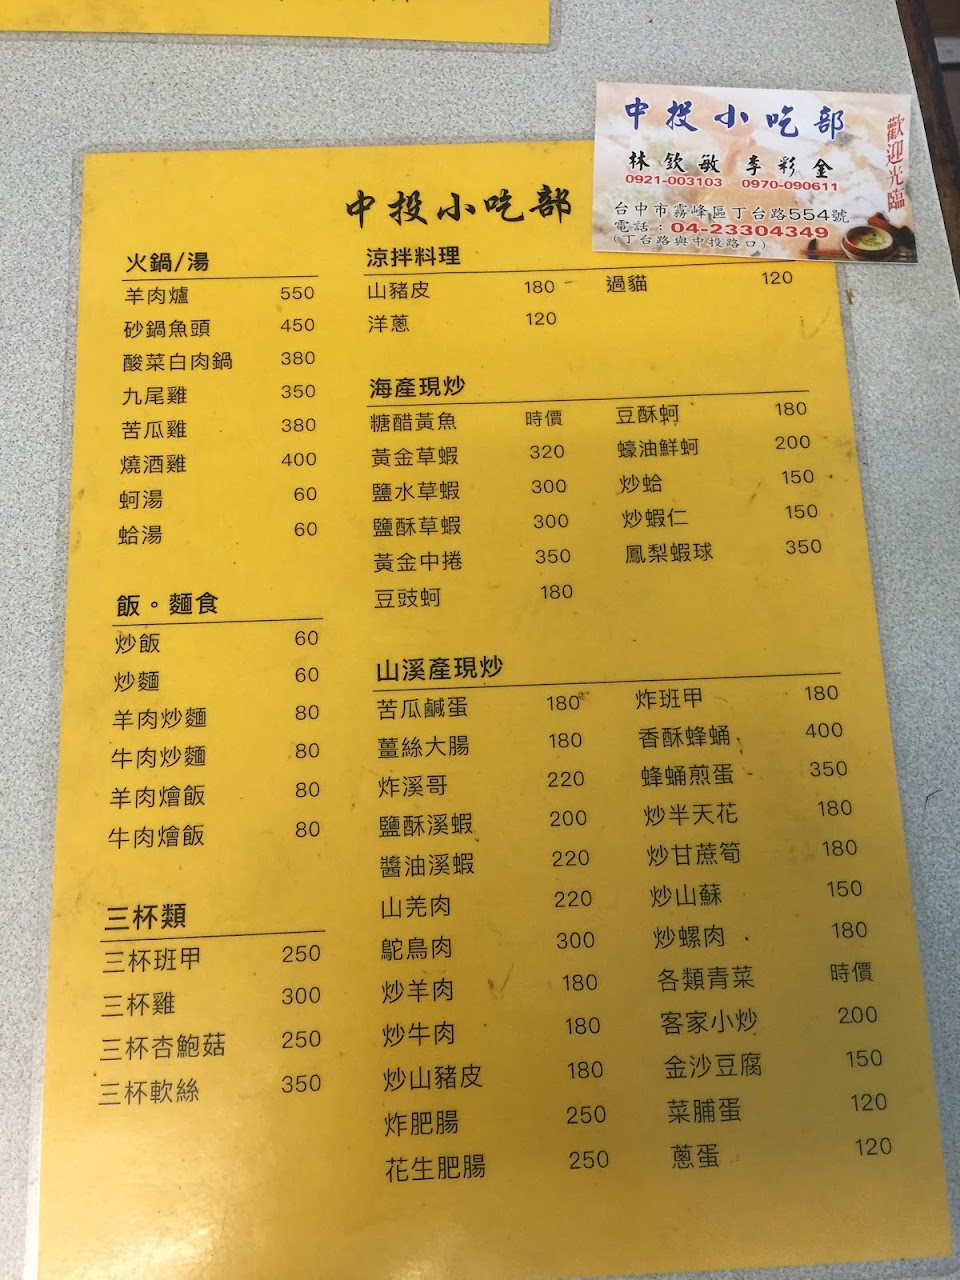 中投小吃部
林欽敏 李彩金
0921-003103 0970-090611
台中市霧峰區丁台路554號
電話：04-23304349
(丁台路與中投路口)
歡迎光臨
中投小吃部
火鍋/湯
羊肉爐 550
砂鍋魚頭 450
酸菜白肉鍋 380
九尾雞 350
苦瓜雞 380
燒酒雞 400
蚵湯 60
蛤湯 60
飯。麵食
炒飯 60
炒麵 60
羊肉炒麵 80
牛肉炒麵 80
羊肉燴飯 80
牛肉燴飯 80
三杯類
三杯班甲 250
三杯雞 300
三杯杏鮑菇 250
三杯軟絲 350
涼拌料理
山豬皮 180 過貓 120
洋蔥 120
海產現炒
糖醋黃魚 時價 豆酥蚵 180
黃金草蝦 320 蠔油鮮蚵 200
鹽水草蝦 300 炒蛤 150
鹽酥草蝦 300 炒蝦仁 150
黃金中捲 350 鳳梨蝦球 350
豆豉蚵 180
山溪產現炒
苦瓜鹹蛋 180 炸班甲 180
薑絲大腸 180 香酥蜂蛹 400
炸溪哥 220 蜂蛹煎蛋 350
鹽酥溪蝦 200 炒半天花 180
醬油溪蝦 220 炒甘蔗筍 180
山羌肉 220 炒山蘇 150
鴕鳥肉 300 炒螺肉 180
炒羊肉 180 各類青菜 時價
炒牛肉 180 客家小炒 200
炒山豬皮 180 金沙豆腐 150
炸肥腸 250 菜脯蛋 120
花生肥腸 250 蔥蛋 120